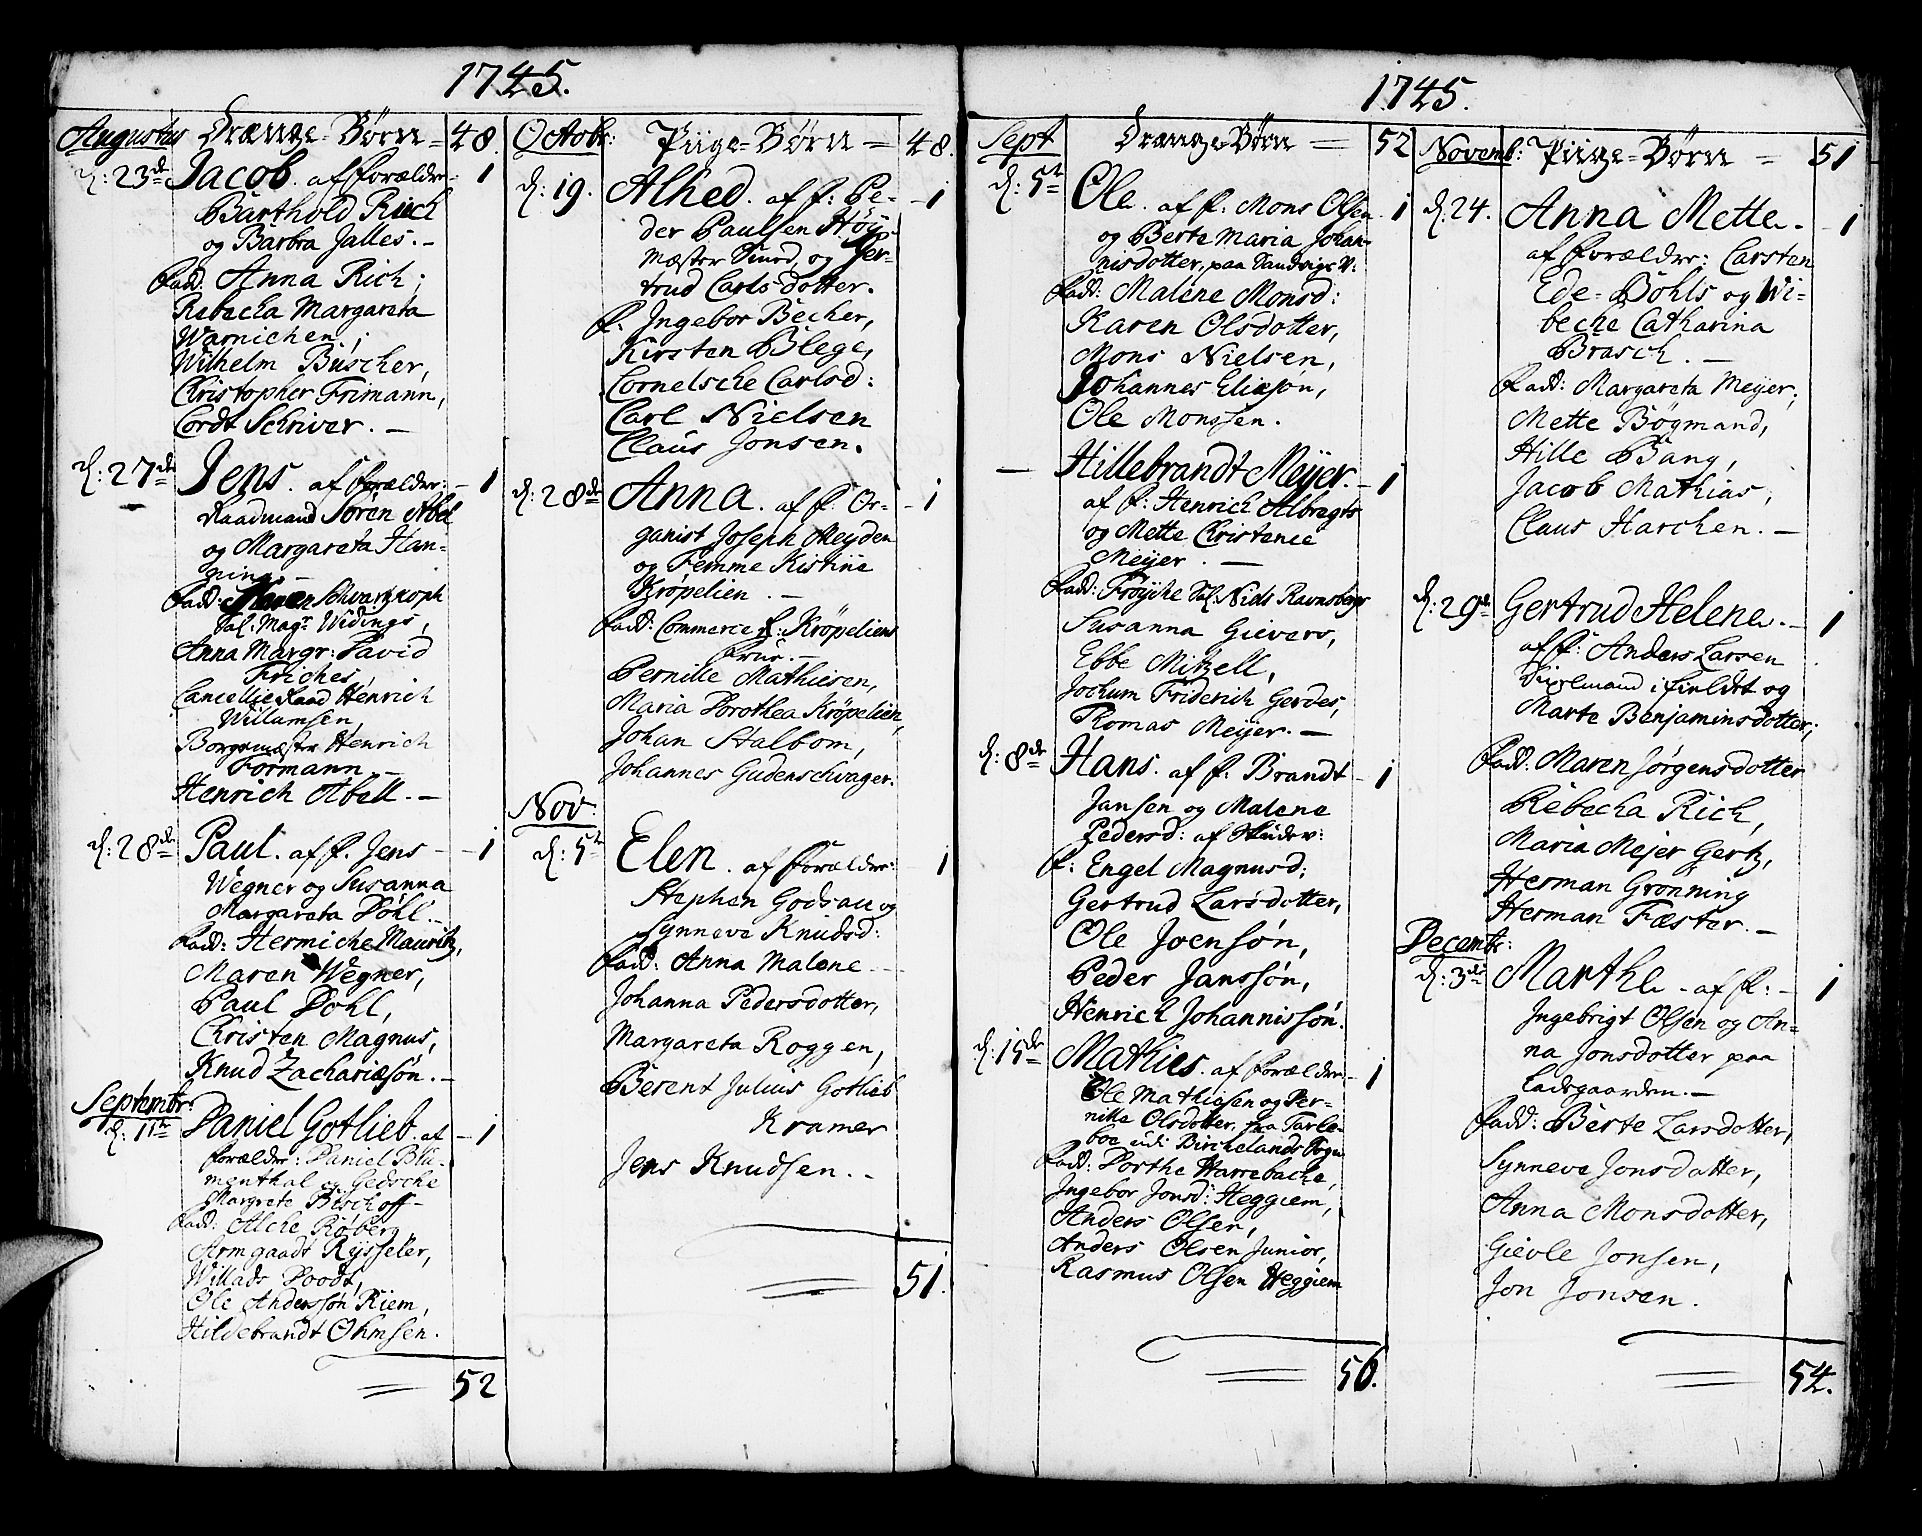 1745.
Augustus Drænge-Børn = 48.
d: 23de Jacob. af forældre - 1
Barthold Rich
og Barbra Jalles. -
Fadd: Anna Rich;
Rebecka Margareta
Warnichen;
Wilhelm Büscher,
Christopher Frimann,
Cordt Schriver. -
d: 27de Jens. af forælder: - 1
Raadmand Søren Abel
og Margareta Han-
nings -
Fadd: Maren Schvartzkoph
Sal: Magr Widings,
Anna Margr: David
Friches,
Cancellie Raad Henrich
Willumsen,
Borgemæster Henrich
Formann -
Henrich Abell. -
d: 28de Paul. af f. Jens - 1
Wegner og Susanna
Margareta Döhl. -
Fadd: Hermiche Mauritz,
Maren Wegner,
Paul Dohl,
Christen Magnus,
Knud Zachariæsøn. -
Septembr:
d: 1te Daniel Gotlieb. af - 1
forælder: Daniel Blu-
menthal og Gedsche
Margrete Bischoff -
Fadd: Alche Røberg,
Armgaadt Rÿsseler,
Willads Poodt,
Ole Anderssøn Riem,
Hildebrandt Ohmsen.
= 52
Octobr: Piige-Børn = 48.
d: 19. Alhed. af f: Pe- - 1
der Paulsen Høy-
Mæster Svend, og Ger-
trud Carlsdotter.
f: Ingebor Becher,
Kirsten Blege,
Cornelsche Carlsd:
Carl Nielsen
Claus Jonsen.
d: 28de Anna. af f. Or- - 1
ganist Joseph Meyden
og Femme Kistine
Krøpelien. -
Fadd: Commerce R: Krøpeliens
Frue. -
Pernille Mathiesen,
Maria Dorothea Krøpelien,
Johan Stalbom,
Johannes Gudenschvager.
Nov:
d: 5te Elen. af forælder: 1
Stephen Godsau og
Synneve Knudsd:
Fadd: Anna Malene -
Johanna Pedersdotter,
Margareta Roggen,
Berent Julius Gotlieb
Kramer
Jens Knudsen. -
= 51.
1745.
Sept Drænge-Børn = 52
d: 5te Ole. af f: Mons Olsen. 1
og Berte Maria Johan-
nisdotter, paa Sandvigs V:
Fadd: Malene Monsd:
Karen Olsdotter,
Mons Nielsen,
Johannes Eliæson,
Ole Monssen.
- Hillebrandt Meÿer. - 1
af f: Henrich Albregts
og Mette Christence
Meÿer. -
Fadd: Frøyche Sal: Niels Ravnsbergs
Susanna Gievers,
Ebbe Mitzell,
Jochum Friderich Gerdes,
Thomas Meÿer. -
d: 8de Hans. af f. Brandt - 1
Jansen og Malene
Pedersd: af Skudev:
f: Engel Magnusd;
Gertrud Larsdotter,
Ole Joensøn,
Peder Janssøn,
Henrich Johannissøn.
d: 15de Mathies. af forældre - 1
Ole Mathiesen og Per-
nille Olsdotter, fra Tarle-
boe udi Birchelands Sogn
Fadd: Dorthe Harrebache,
Ingebor Jonsd: Heggiem,
Anders Olsen,
Anders Olsen Junior,
Rasmus Olsen Heggiem
= 56.
Novemb: Piige-Børn = 51
d. 24. Anna Mette. - 1
af forælder: Carsten
Ede-Bøhls og Wi-
beche Catharina
Brasch. -
Fadd: Margareta Meÿer,
Mette Bøgmand,
Hille Bang,
Jacob Mathias,
Claus Harchen. -
d: 29de Gertrud Helene. - 1
af f: Anders Larsen
i fieldet og
Marte Benjaminsdotter;
Fadd: Maren Jørgensdotter
Rebecha Rich,
Maria Mejer Gertz,
Herman Grønning
Herman Fæster. -
Decembr:
d: 3de Marthe. - af f: - 1
Ingebrigt Olsen og An-
na Jonsdotter paa
Ladegaarden. -
Fadd: Berte Larsdotter,
Synneve Jonsdotter,
Anna Monsdotter,
Gievle Jonsen,
Jon Jonsen.
= 54.